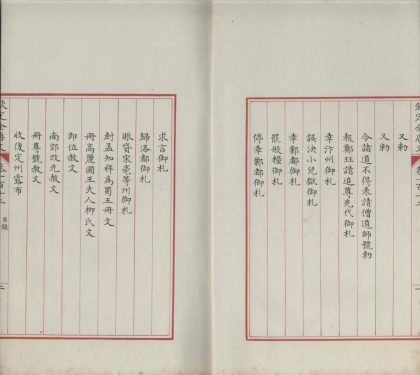 欽定全唐文
卷一百十二
一
又勅
又勅
令諸道不得表請僧道師號勅
報鄭珏請追尊先代御札
幸汴州御札
誤決小兒獄御札
幸鄴都御札
罷般糧御札
停幸鄴都御札
求言御札
歸洛都御札
賑貸宋亳等州御札
封孟知祥為蜀王冊文
冊高麗國王夫人柳氏文
即位赦文
南郊改元赦文
冊尊號赦文
收復定州露布
欽定全唐文
卷一百十二
目錄
二